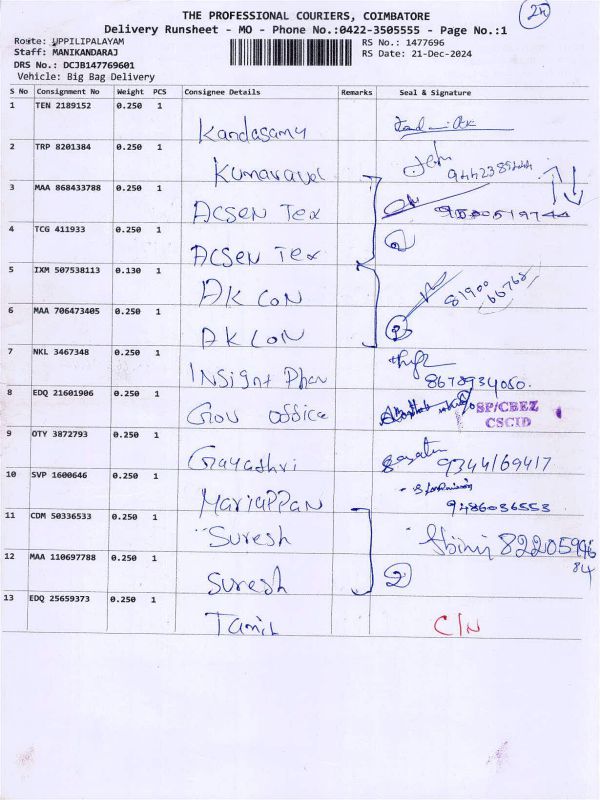 THE PROFESSIONAL COURIERS, COIMBATORE
Delivery Runsheet - MO - Phone No.:0422-3505555 - Page No.:1
Route: UPPILIPALAYAM
RS No.: 1477696
Staff: MANIKANDARAJ
RS Date: 21-Dec-2024
DRS No.: DCJB147769601
Vehicle: Big Bag Delivery
S No Consignment No Weight PCS Consignee Details Remarks Seal & Signature
1 TEN 2189152 0.250 1 Kandasamy
2 TRP 8201384 0.250 1 Kumaravel
3 MAA 868433788 0.250 1 ACSEN Tex
4 TCG 411933 0.250 1 ACSEN Tex 2
5 IXM 507538113 0.130 1 AK CON 81900 66768
6 MAA 706473405 0.250 1 AK CON 2
7 NKL 3467348 0.250 1 INSignt 8678934060.
8 EDQ 21601906 0.250 1 Gov office SP/CBEZ
CSCID
9 OTY 3872793 0.250 1 Gayathri 9344169417
10 SVP 1600646 0.250 1 Mariappan 9486036553
11 CDM 50336533 0.250 1 Suresh 82205996
84
12 MAA 110697788 0.250 1 Suresh 2
13 EDQ 25659373 0.250 1 Tamil C/N